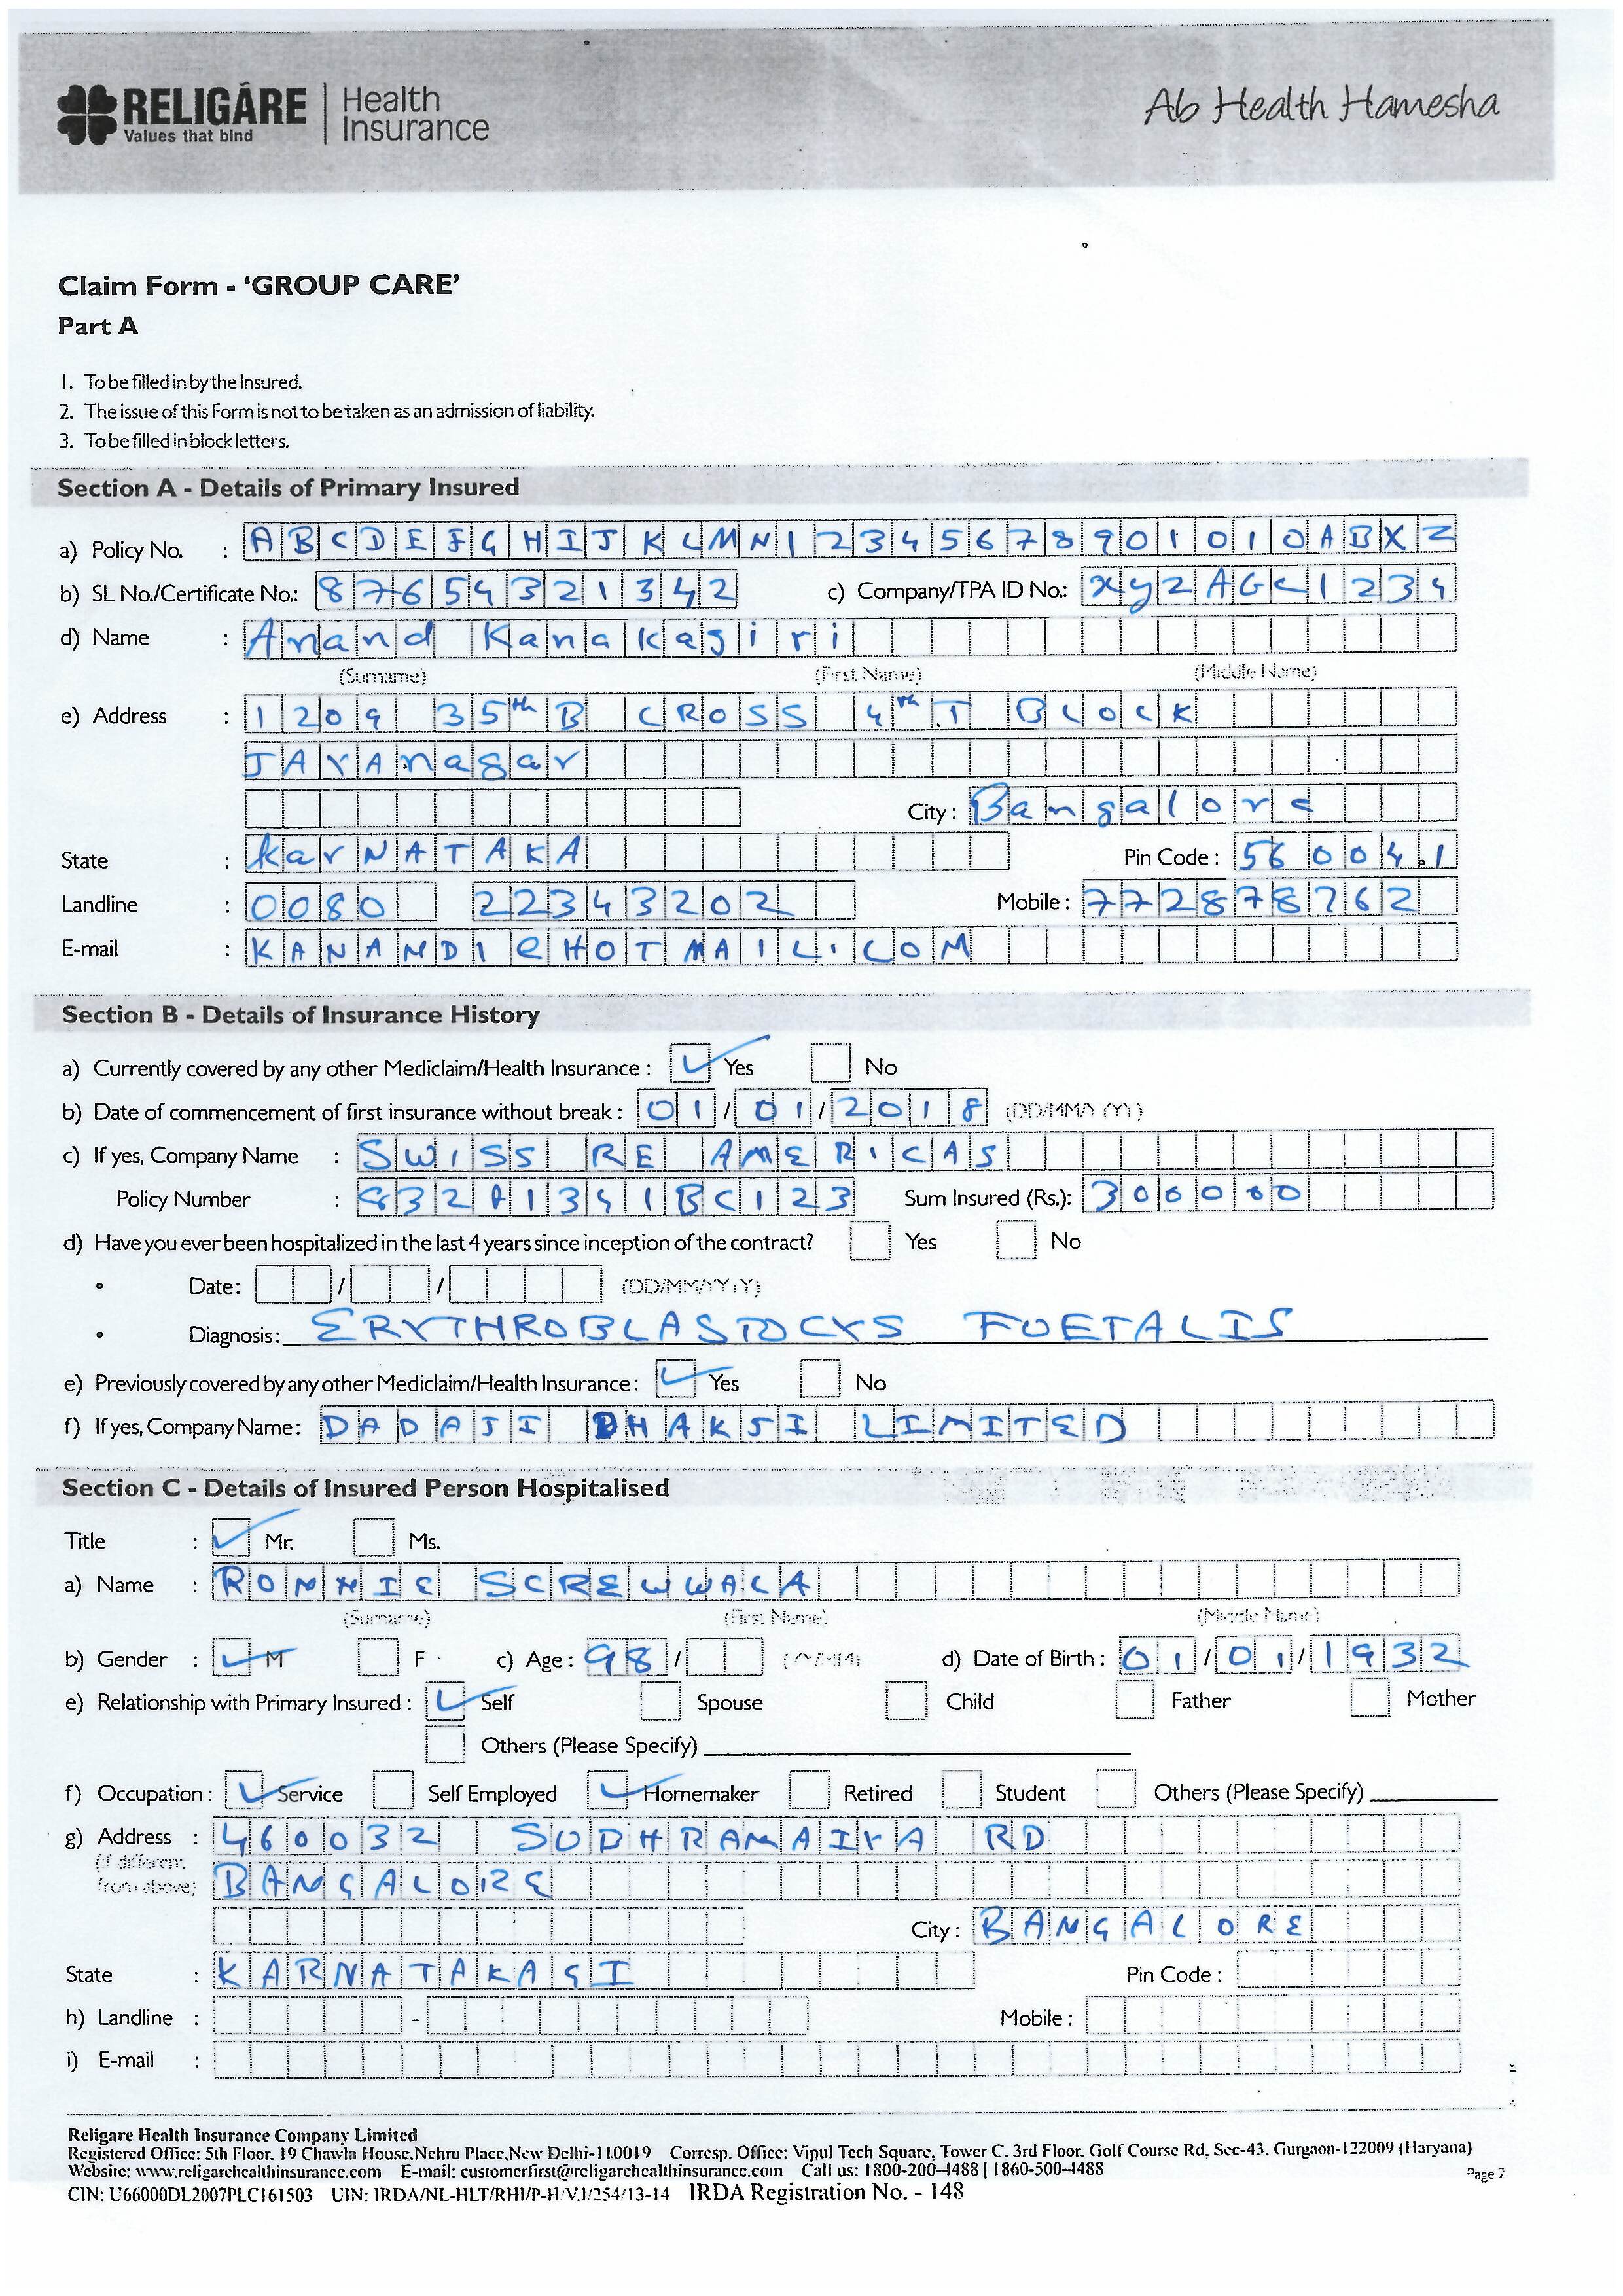 RELIGARE Health Insurance
Values that bind
Ab Health Hamesha
Claim Form - 'GROUP CARE'
Part A
1. To be filled in by the Insured.
2. The issue of this Form is not to be taken as an admission of liability.
3. To be filled in block letters.
Section A - Details of Primary Insured
a) Policy No. : ABCDEFGHIJKLMN12345678901010ABXZ
b) SL No./Certificate No.: 87654321342 c) Company/TPA ID No.: XYZAGC1234
d) Name : Anand Kanakagiri
(Surname) (First Name) (Middle Name)
e) Address : 1209 35th B CROSS 4th T BLOCK
JAYAnagar
City : Bangalore
State : KarNATAKA Pin Code : 560041
Landline : 0080 22343202 Mobile : 772878762
E-mail : KANAND1@HOTMAIL.COM
Section B - Details of Insurance History
a) Currently covered by any other Mediclaim/Health Insurance : Yes No
b) Date of commencement of first insurance without break : 01/01/2018 (DD/MM/YYYY)
c) If yes, Company Name : SWISS RE AMERICAS
Policy Number : 832A1341BC123 Sum Insured (Rs.): 300000
d) Have you ever been hospitalized in the last 4 years since inception of the contract? Yes No
• Date: / / (DD/MM/YYYY)
• Diagnosis: ERYTHROBLASTOCYS FOETALIS
e) Previously covered by any other Mediclaim/Health Insurance : Yes No
f) If yes, Company Name: DADAJI DHAKSI LIMITED
Section C - Details of Insured Person Hospitalised
Title : Mr. Ms.
a) Name : RONNIE SCREWWALA
(Surname) (First Name) (Middle Name)
b) Gender : M F c) Age : 98 / (YY/MM) d) Date of Birth : 01/01/1932
e) Relationship with Primary Insured : Self Spouse Child Father Mother
Others (Please Specify)
f) Occupation : Service Self Employed Homemaker Retired Student Others (Please Specify)
g) Address : 460032 SUDHRAMAIYA RD
(if different
from above) BANGALORE
City : BANGALORE
State : KARNATAKAGI Pin Code :
h) Landline : - Mobile :
i) E-mail :
Religare Health Insurance Company Limited
Registered Office: 5th Floor, 19 Chawla House,Nehru Place,New Delhi-110019 Corresp. Office: Vipul Tech Square, Tower C, 3rd Floor, Golf Course Rd, Sec-43, Gurgaon-122009 (Haryana)
Website: www.religarehealthinsurance.com E-mail: customerfirst@religarehealthinsurance.com Call us: 1800-200-4488 | 1860-500-4488
Page 2
CIN: U66000DL2007PLC161503 UIN: IRDA/NL-HLT/RHI/P-H/V.I/254/13-14 IRDA Registration No. - 148